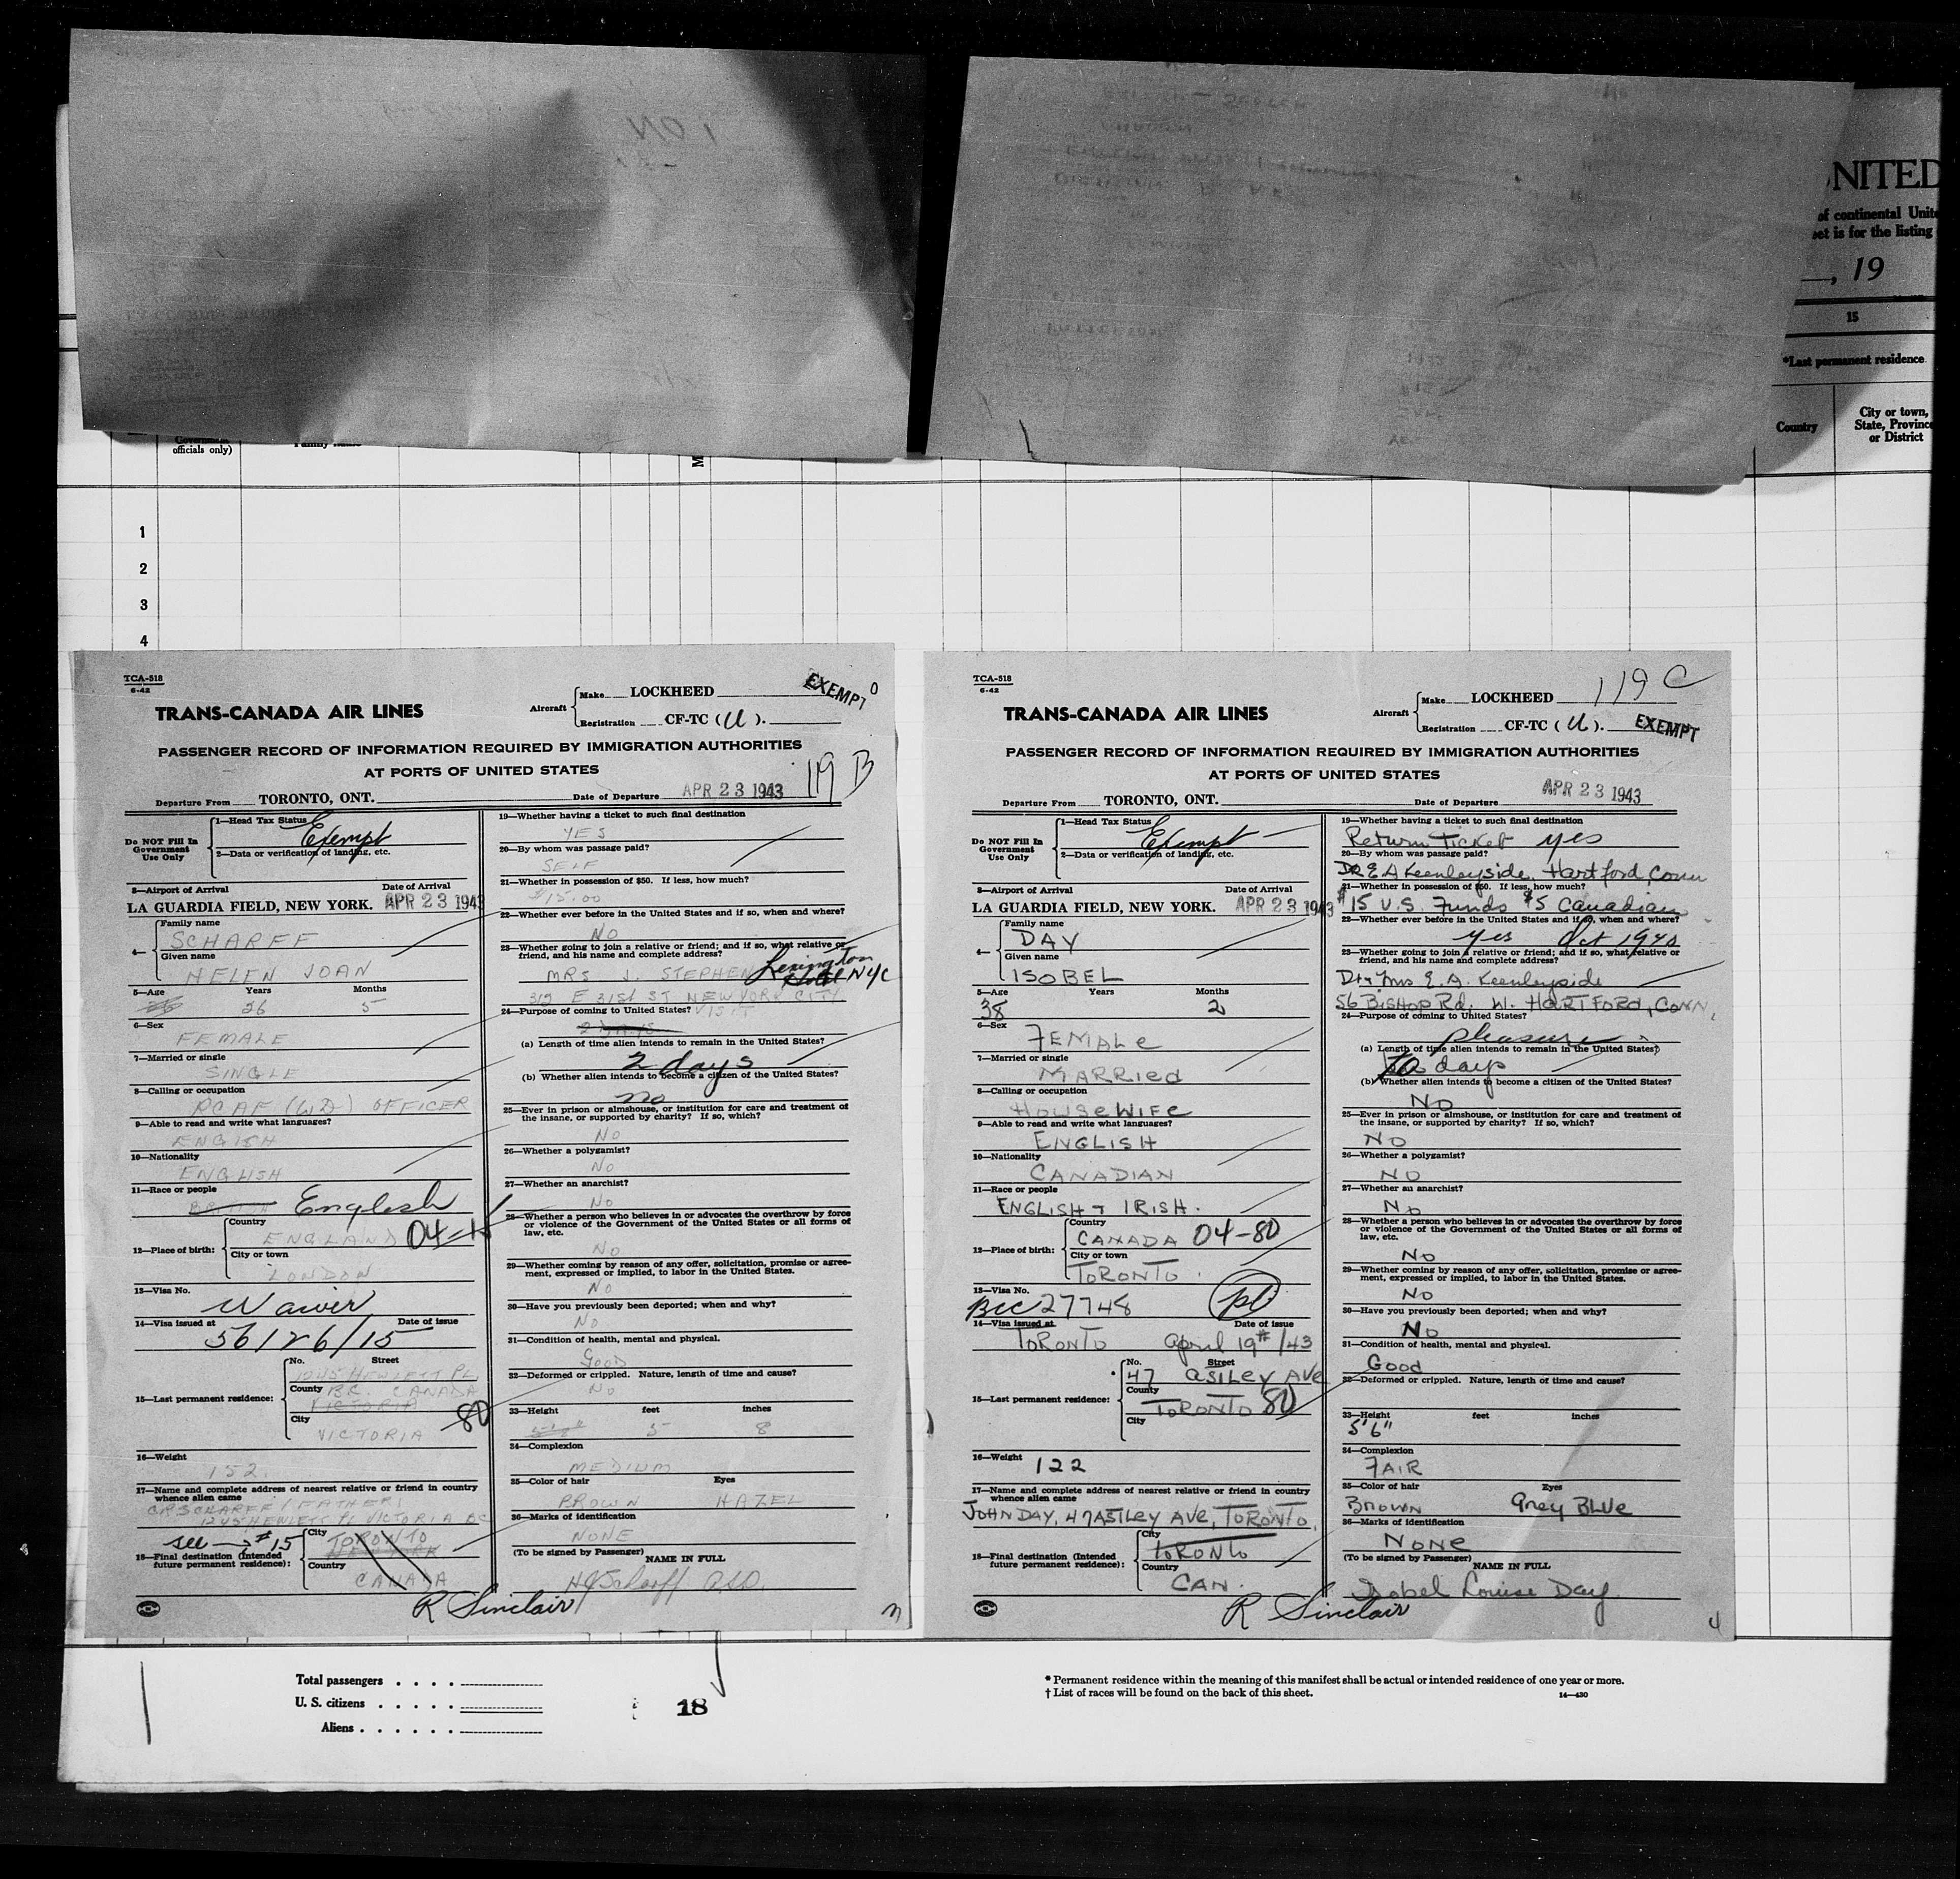 NITED
of continental Unit
et is for the listing
, 19
15
*Last permanent residence
Country
City or town,
State, Province
or District
officials only)
1
2
3
4
TCA-518
6-42
TRANS-CANADA AIR LINES
Aircraft
Make LOCKHEED
Registration CF-TC (U).
EXEMPT
PASSENGER RECORD OF INFORMATION REQUIRED BY IMMIGRATION AUTHORITIES
AT PORTS OF UNITED STATES
119 B
Departure From TORONTO, ONT.
Date of Departure APR 23 1943
Do NOT Fill In
Government
Use Only
1—Head Tax Status
Exempt
2—Data or verification of landing, etc.
3—Airport of Arrival
Date of Arrival
LA GUARDIA FIELD, NEW YORK. APR 23 1943
4—
Family name
SCHARFF
Given name
HELEN JOAN
5—Age Years Months
26 5
6—Sex
FEMALE
7—Married or single
SINGLE
8—Calling or occupation
RCAF (WD) OFFICER
9—Able to read and write what languages?
ENGLISH
10—Nationality
ENGLISH
11—Race or people
English
12—Place of birth:
Country
ENGLAND 04-
City or town
LONDON
13—Visa No.
Waiver
14—Visa issued at Date of issue
56126/15
15—Last permanent residence:
No. Street
1245 HEWLETT PL
County BC. CANADA
VICTORIA
City
VICTORIA
80
16—Weight
152
17—Name and complete address of nearest relative or friend in country
whence alien came
SCHARFF (FATHER)
1245 HEWLETT PL VICTORIA BC
see → #15
18—Final destination (Intended
future permanent residence):
City
TORONTO
NEW YORK
Country
CANADA
19—Whether having a ticket to such final destination
YES
20—By whom was passage paid?
SELF
21—Whether in possession of $50. If less, how much?
$15.00
22—Whether ever before in the United States and if so, when and where?
NO
23—Whether going to join a relative or friend; and if so, what relative or
friend, and his name and complete address?
MRS J. STEPHEN Lexington
Hotel NYC
312 E 31ST ST NEW YORK CITY
24—Purpose of coming to United States? VISIT
(a) Length of time alien intends to remain in the United States?
2 days
(b) Whether alien intends to become a citizen of the United States?
no
25—Ever in prison or almshouse, or institution for care and treatment of
the insane, or supported by charity? If so, which?
NO
26—Whether a polygamist?
NO
27—Whether an anarchist?
NO
28—Whether a person who believes in or advocates the overthrow by force
or violence of the Government of the United States or all forms of
law, etc.
NO
29—Whether coming by reason of any offer, solicitation, promise or agree-
ment, expressed or implied, to labor in the United States.
NO
30—Have you previously been deported; when and why?
NO
31—Condition of health, mental and physical.
GOOD
32—Deformed or crippled. Nature, length of time and cause?
NO
33—Height feet inches
5 8
34—Complexion
MEDIUM
35—Color of hair Eyes
BROWN HAZEL
36—Marks of identification
NONE
(To be signed by Passenger)
NAME IN FULL
HJ Scharff
R Sinclair
TCA-518
6-42
TRANS-CANADA AIR LINES
Aircraft
Make LOCKHEED
Registration CF-TC (U).
119 C
EXEMPT
PASSENGER RECORD OF INFORMATION REQUIRED BY IMMIGRATION AUTHORITIES
AT PORTS OF UNITED STATES
Departure From TORONTO, ONT.
Date of Departure APR 23 1943
Do NOT Fill In
Government
Use Only
1—Head Tax Status
Exempt
2—Data or verification of landing, etc.
3—Airport of Arrival
Date of Arrival
LA GUARDIA FIELD, NEW YORK. APR 23 1943
4—
Family name
DAY
Given name
ISOBEL
5—Age Years Months
38 2
6—Sex
FEMALE
7—Married or single
MARRIED
8—Calling or occupation
HOUSEWIFE
9—Able to read and write what languages?
ENGLISH
10—Nationality
CANADIAN
11—Race or people
ENGLISH + IRISH.
12—Place of birth:
Country
CANADA 04-80
City or town
TORONTO
13—Visa No.
BCC 27748
14—Visa issued at Date of issue
TORONTO April 19th/43
15—Last permanent residence:
No. Street
47 ASTLEY AVE
County
TORONTO 80
City
16—Weight
122
17—Name and complete address of nearest relative or friend in country
whence alien came
JOHN DAY, 47 ASTLEY AVE, TORONTO.
18—Final destination (Intended
future permanent residence):
City
TORONTO
Country
CAN.
19—Whether having a ticket to such final destination
Return Ticket yes
20—By whom was passage paid?
DR E A Keenleyside, Hartford, Conn
21—Whether in possession of $50. If less, how much?
$15 U.S. Funds $5 Canadian
22—Whether ever before in the United States and if so, when and where?
yes Oct 1940
23—Whether going to join a relative or friend; and if so, what relative or
friend, and his name and complete address?
Dr + Mrs E. A. Keenleyside
56 BISHOP Rd, W. HARTFORD, CONN,
24—Purpose of coming to United States?
pleasure
(a) Length of time alien intends to remain in the United States?
10 days
(b) Whether alien intends to become a citizen of the United States?
No
25—Ever in prison or almshouse, or institution for care and treatment of
the insane, or supported by charity? If so, which?
NO
26—Whether a polygamist?
NO
27—Whether an anarchist?
No
28—Whether a person who believes in or advocates the overthrow by force
or violence of the Government of the United States or all forms of
law, etc.
NO
29—Whether coming by reason of any offer, solicitation, promise or agree-
ment, expressed or implied, to labor in the United States.
NO
30—Have you previously been deported; when and why?
No
31—Condition of health, mental and physical.
Good
32—Deformed or crippled. Nature, length of time and cause?
33—Height feet inches
5'6"
34—Complexion
FAIR
35—Color of hair Eyes
BROWN Grey BLUE
36—Marks of identification
NONE
(To be signed by Passenger)
NAME IN FULL
Isobel Louise Day.
R Sinclair
4
Total passengers . . . .
U. S. citizens . . . . .
Aliens . . . . . .
18
* Permanent residence within the meaning of this manifest shall be actual or intended residence of one year or more.
† List of races will be found on the back of this sheet.
14—430